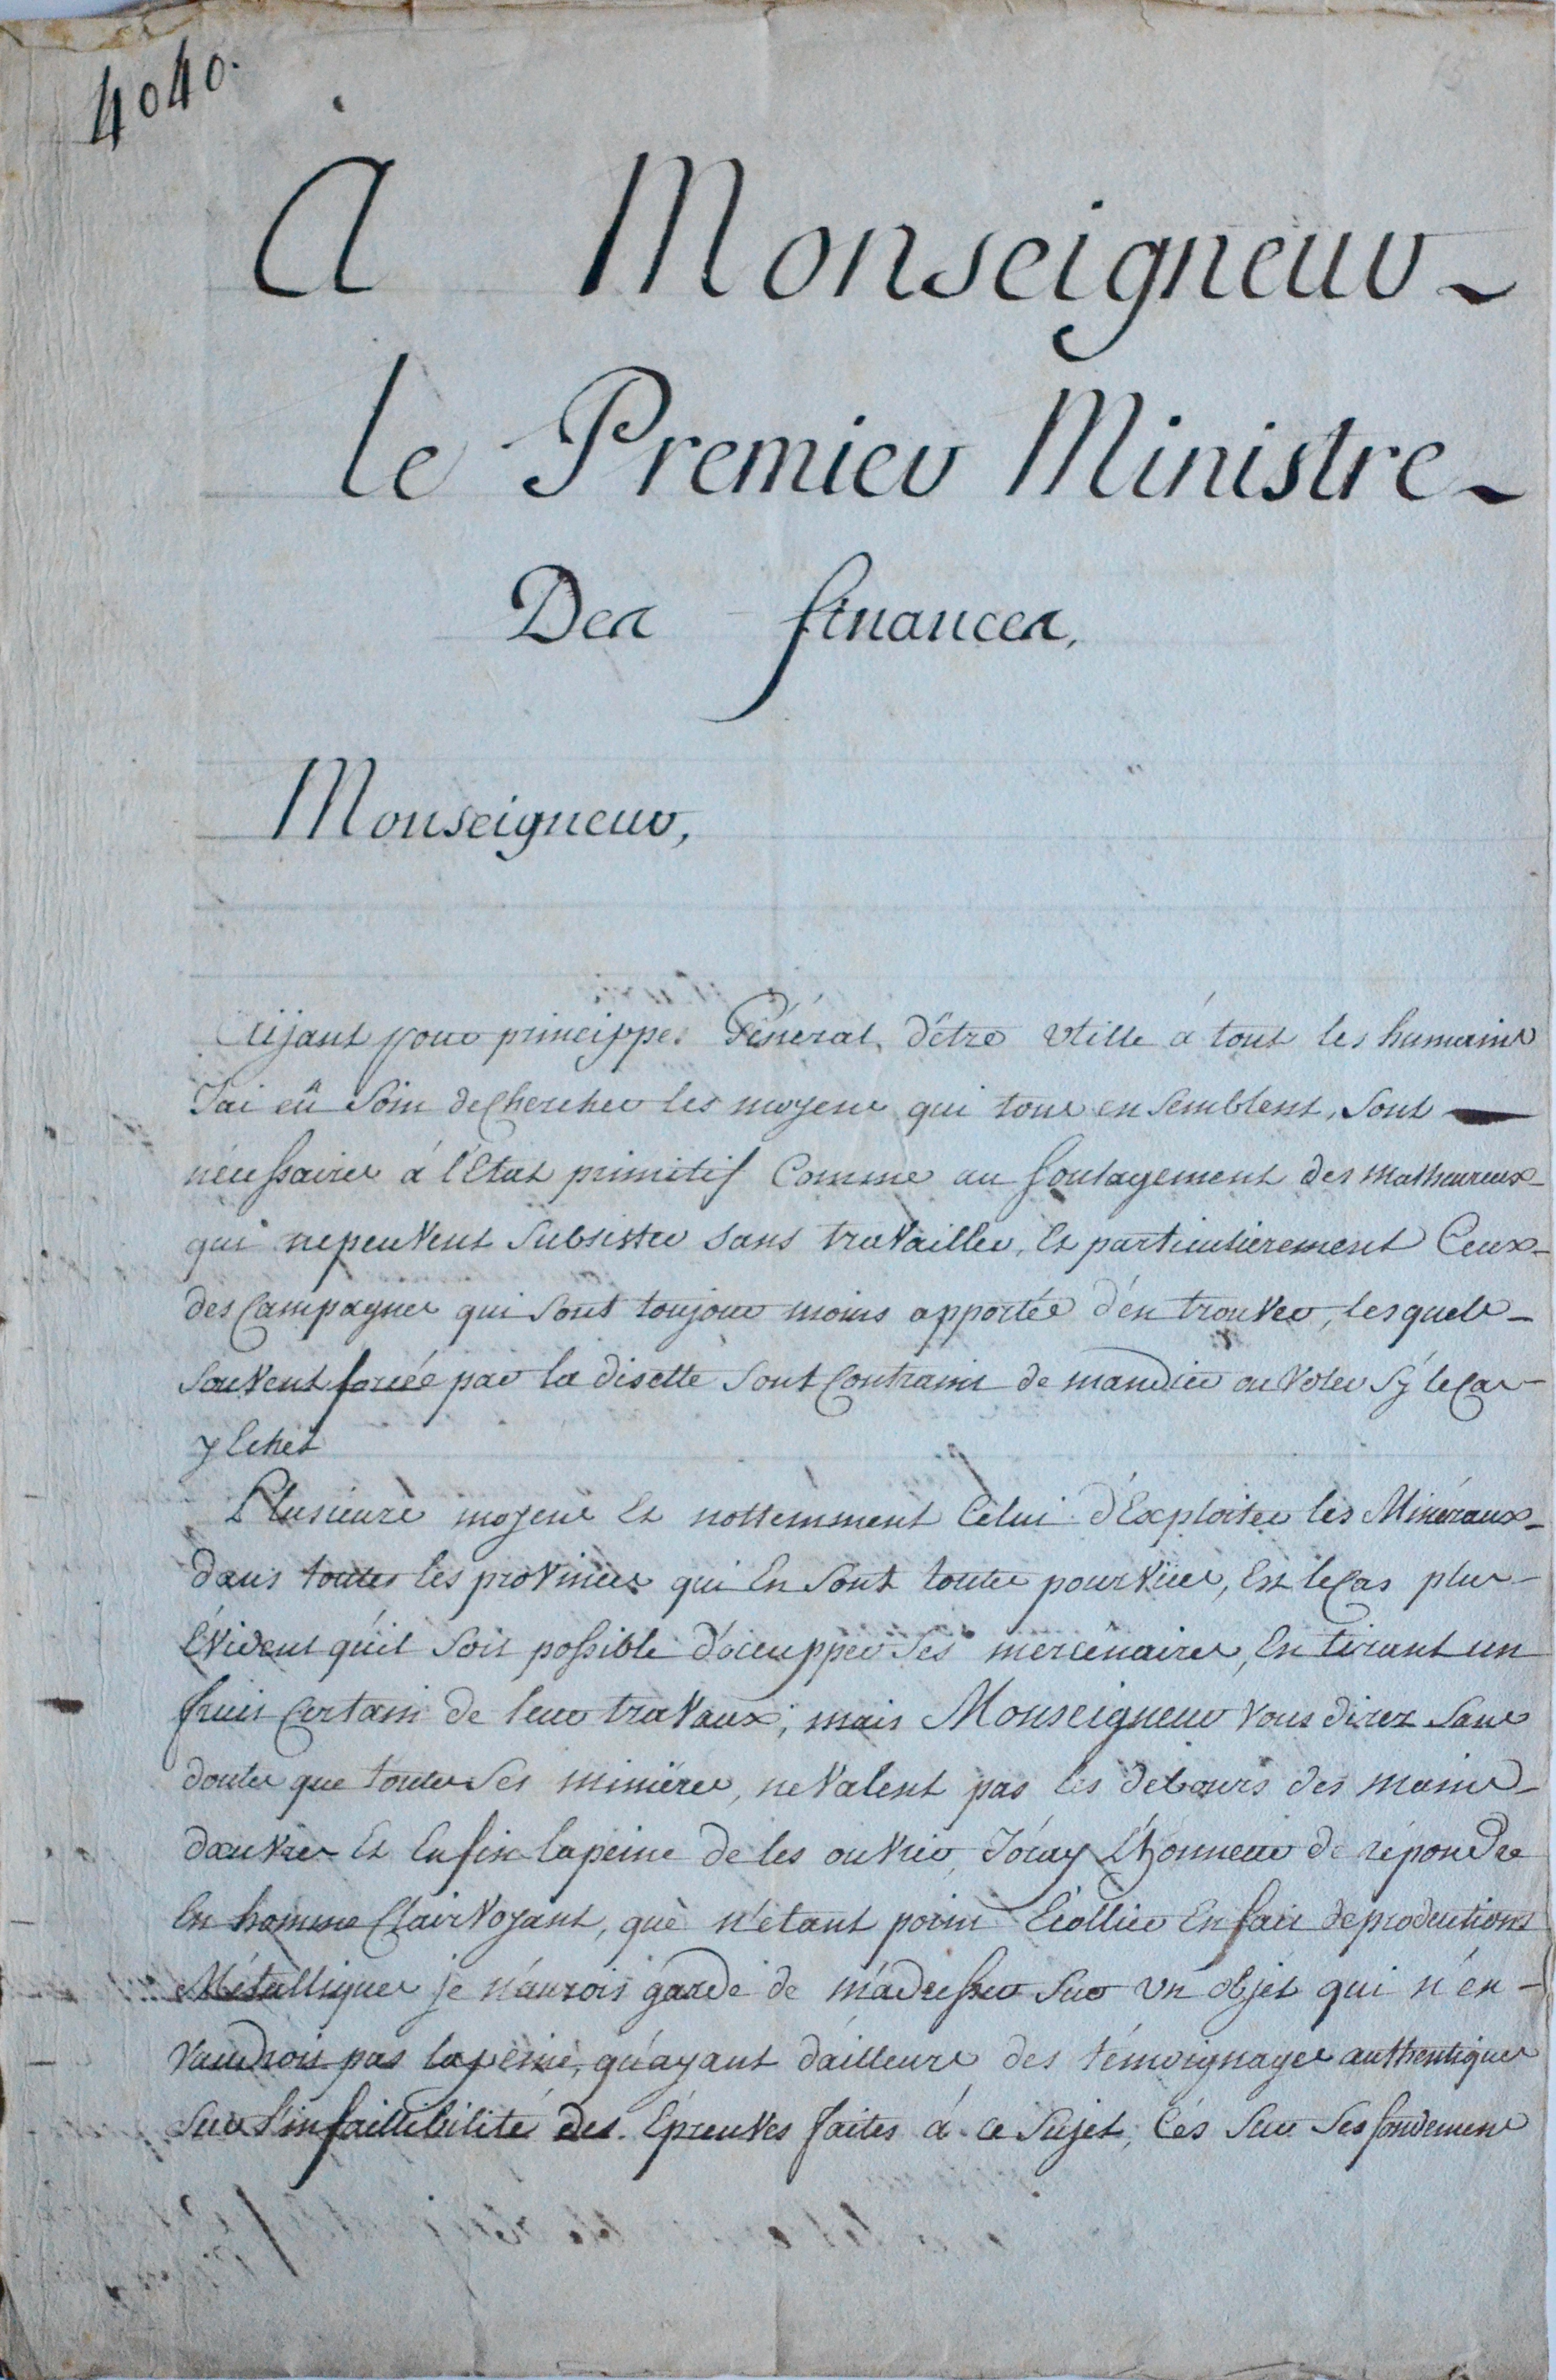 4040.
A Monseigneur
le Premier Ministre
Des finances,
Monseigneur,
Aijant pour princippes Général, d'étre utille á tout les humains
J'ai eû soin de chercher les moyens qui tous en semblent, sont
nécessaires á l'Etat primitif Comme au soulagement des malheureux
qui ne peuvent subsister sans travailler, Et particulierement Ceux
des Campagnes qui sont toujour moins apportés d'én trouver, lesquels
souvent forcés par la disette sont Contrains de mandier ou voler sÿ le Cas
y Echet
Plusieurs moyens Et nottemment Celui d'Exploiter les Minéraux
dans toutes les provinces qui En sont toutes pourvües, Est le Cas plus
Évident qu'il soit possible d'occupper ses mercénaires, En tirant un
fruit Certain de leur travaux; mais Monseigneur vous direz sans
doutes que toutes ses miniéres, ne valent pas les debours des mains
doeuvres Et Enfin la peine de les ouvrir, J'oray L'honneur de répondre
En homme Clairvoyant, que n'étant point Ecollier En fait de productions
Métalliques je n'aurois garde de m'adresser sur un objet qui n'én
vaudroit pas la peine, qu'ayant d'ailleurs des témoignages authentiques
sur l'infaillibilité des Epreuves faites á ce sujet, C'és sur ses fondemens